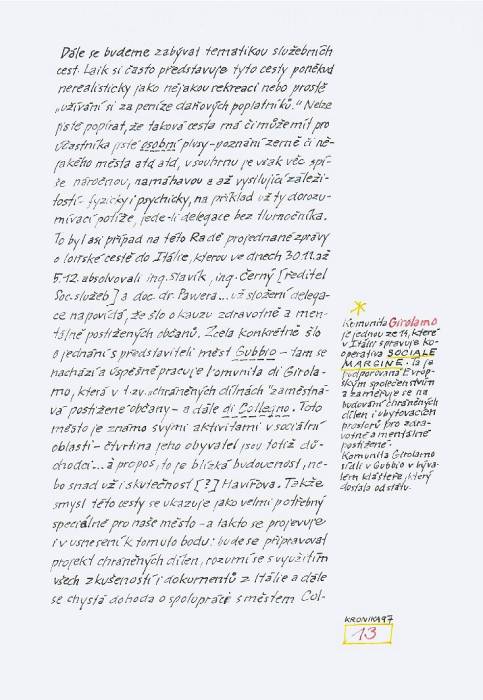 Dále se budeme zabývat tematikou služebních
cest. Laik si často představuje tyto cesty poněkud
nerealisticky jako nějakou rekreaci nebo prostě
„užívání si za peníze daňových poplatníků." Nelze
jistě popírat, že taková cesta má či může mít pro
účastníka jisté osobní plusy - poznání země či ně-
jakého města atd atd, v souhrnu je však věc spí-
še náročnou, namáhavou a až vysilující záleži-
tostí - fyzicky i psychicky, na příklad už ty dorozu-
mívací potíže, jede-li delegace bez tlumočníka.
To byl asi případ na této Radě projednané zprávy
o loňské cestě do Itálie, kterou ve dnech 30.11. až
5.12. absolvovali ing. Slavík, ing. Černý [ředitel
Soc. služeb] a doc. dr. Pawera... už složení delega-
ce napovídá, že šlo o kauzu zdravotně a men-
tálně postižených občanů. Zcela konkrétně šlo
o jednání s představiteli měst Gubbio - tam se
nachází a úspěšně pracuje komunita di Girola-
mo, která v t.zv. „chráněných dílnách" zaměstná-
vá postižené občany - a dále di Collegno. Toto
město je známo svými aktivitami v sociální
oblasti - čtvrtina jeho obyvatel jsou totiž dů-
chodci... a propos, to je blízká budoucnost, ne-
bo snad už i skutečnost [?] Havířova. Takže
smysl této cesty se ukazuje jako velmi potřebný
speciálně pro naše město - a takto se projevuje
i v usnesení k tomuto bodu: bude se připravovat
projekt chráněných dílen, rozumí se s využitím
všech zkušeností i dokumentů z Itálie a dále
se chystá dohoda o spolupráci s městem Col-
Komunita Girolamo
je jednou ze 14, které
v Itálii spravuje ko-
operativa SOCIALE
MARGINE. Ta je
podporována Evrop-
ským společenstvím
a zaměřuje se na
budování chráněných
dílen i ubytovacích
prostorů pro zdra-
votně a mentálně
postižené.
Komunita Girolamo
sídlí v Gubbio v býva-
lém klášteře, který
dostala od státu.
KRONIKA 97
13